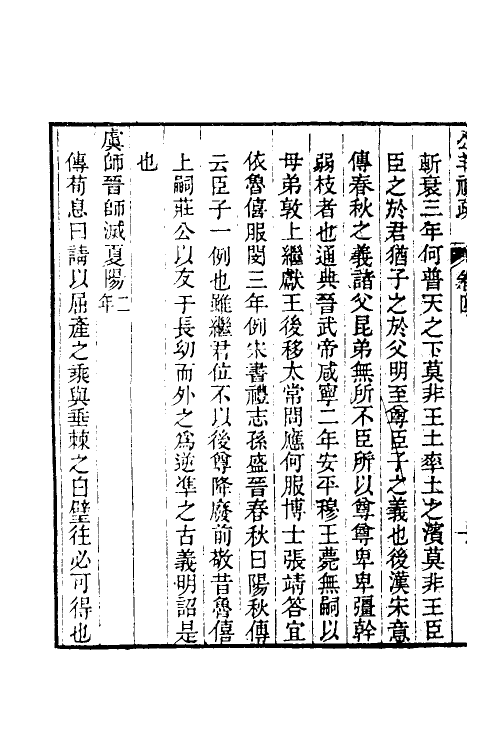 公羊禮疏 卷四
斬衰三年何普天之下莫非王土率土之濱莫非王臣
臣之於君猶子之於父明至尊臣子之義也後漢宋意
傳春秋之義諸父昆弟無所不臣所以尊尊卑卑彊幹
弱枝者也通典晉武帝咸寧二年安平穆王薨無嗣以
母弟敦上繼獻王後移太常問應何服博士張靖答宜
依魯僖服閔三年例宋書禮志孫盛晉春秋曰陽秋傳
云臣子一例也雖繼君位不以後尊降廢前敬昔魯僖
上嗣莊公以友于長幼而外之為逆準之古義明詔是
也
虞師晉師滅夏陽二年
傳荀息曰請以屈產之乘與垂棘之白璧往必可得也